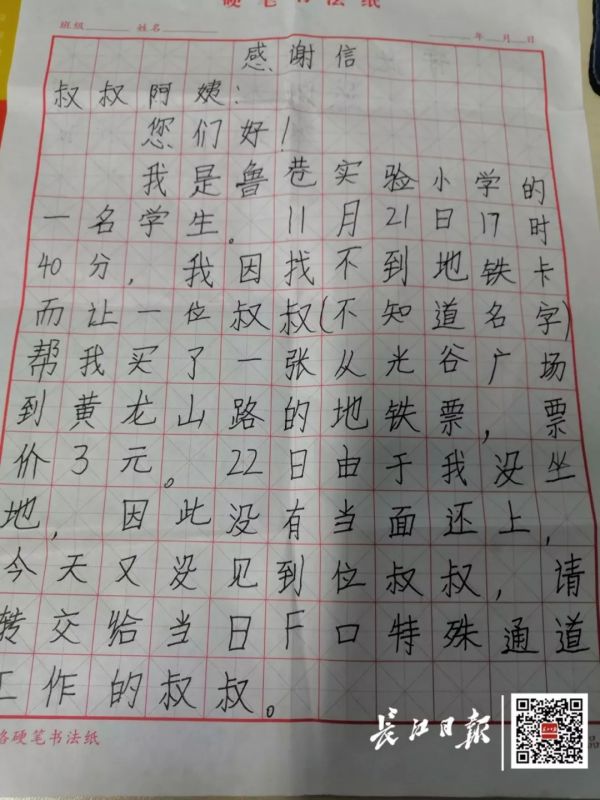 硬笔书法纸
班级 姓名 年 月 日
感谢信
叔叔阿姨:
您们好!
我是鲁巷实验小学的
一名学生。11月21日17时
40分,我因找不到地铁卡
而让一位叔叔(不知道名字)
帮我买了一张从光谷广场
到黄龙山路的地铁票,票
价3元。22日由于我没坐
地,因此没有当面还上,
今天又没见到位叔叔,请
转交给当日F口特殊通道
工作的叔叔。
硬笔书法纸
长江日报